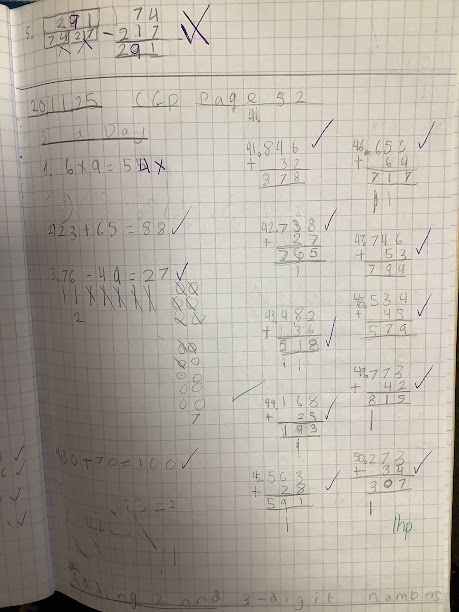 5. 291
74 217
74
- 217
291
CGP page 52
5 a Day
1. 6 x 9 = 54
2. 23 + 65 = 88
3. 76 - 49 = 27
2
7
4. 30 + 70 = 100
41. 846
+ 32
878
42. 738
+ 27
765
1
43. 482
+ 136
518
1 1
44. 168
+ 25
193
1
45. 563
+ 28
591
1
46. 653
+ 64
717
1 1
47. 746
+ 53
799
48. 534
+ 45
579
49. 773
+ 42
815
1
50. 273
+ 34
307
1
1hp
Adding 2 and 3-digit numbers